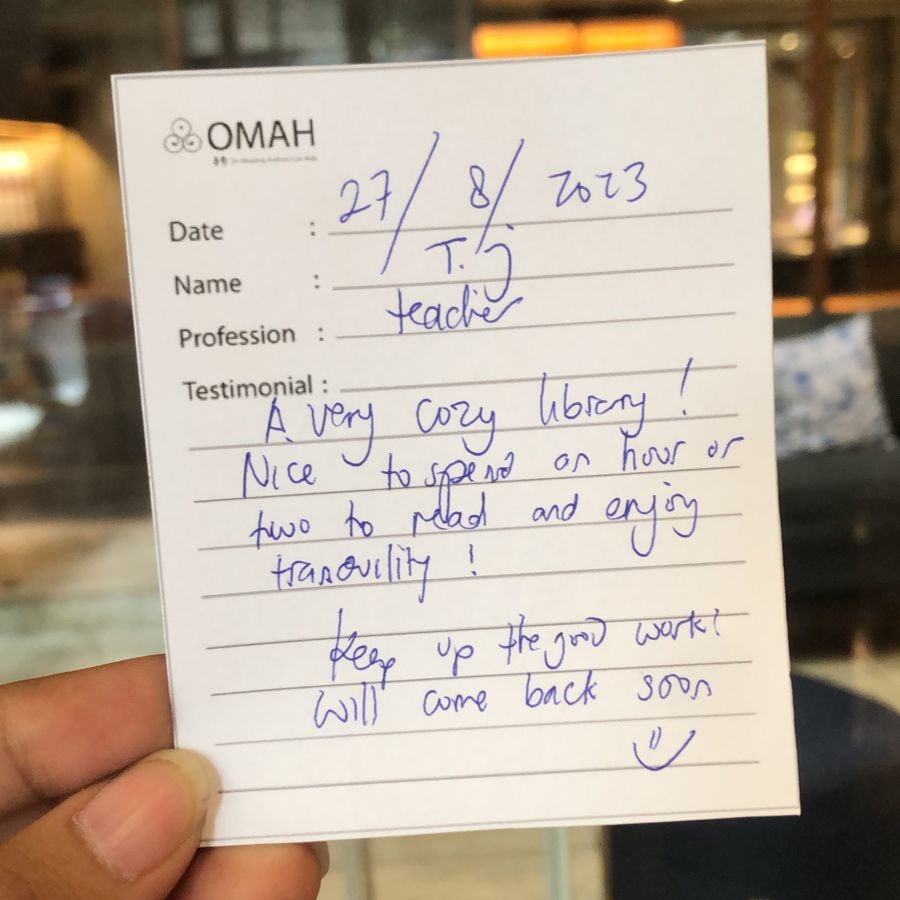 OMAH
On Meeting Architecture Hub
Date : 27/8/2023
Name : T.j
Profession : teacher
Testimonial :
A very cozy library!
Nice to spend an hour or
two to read and enjoy
tranquility!
Keep up the good work!
Will come back soon